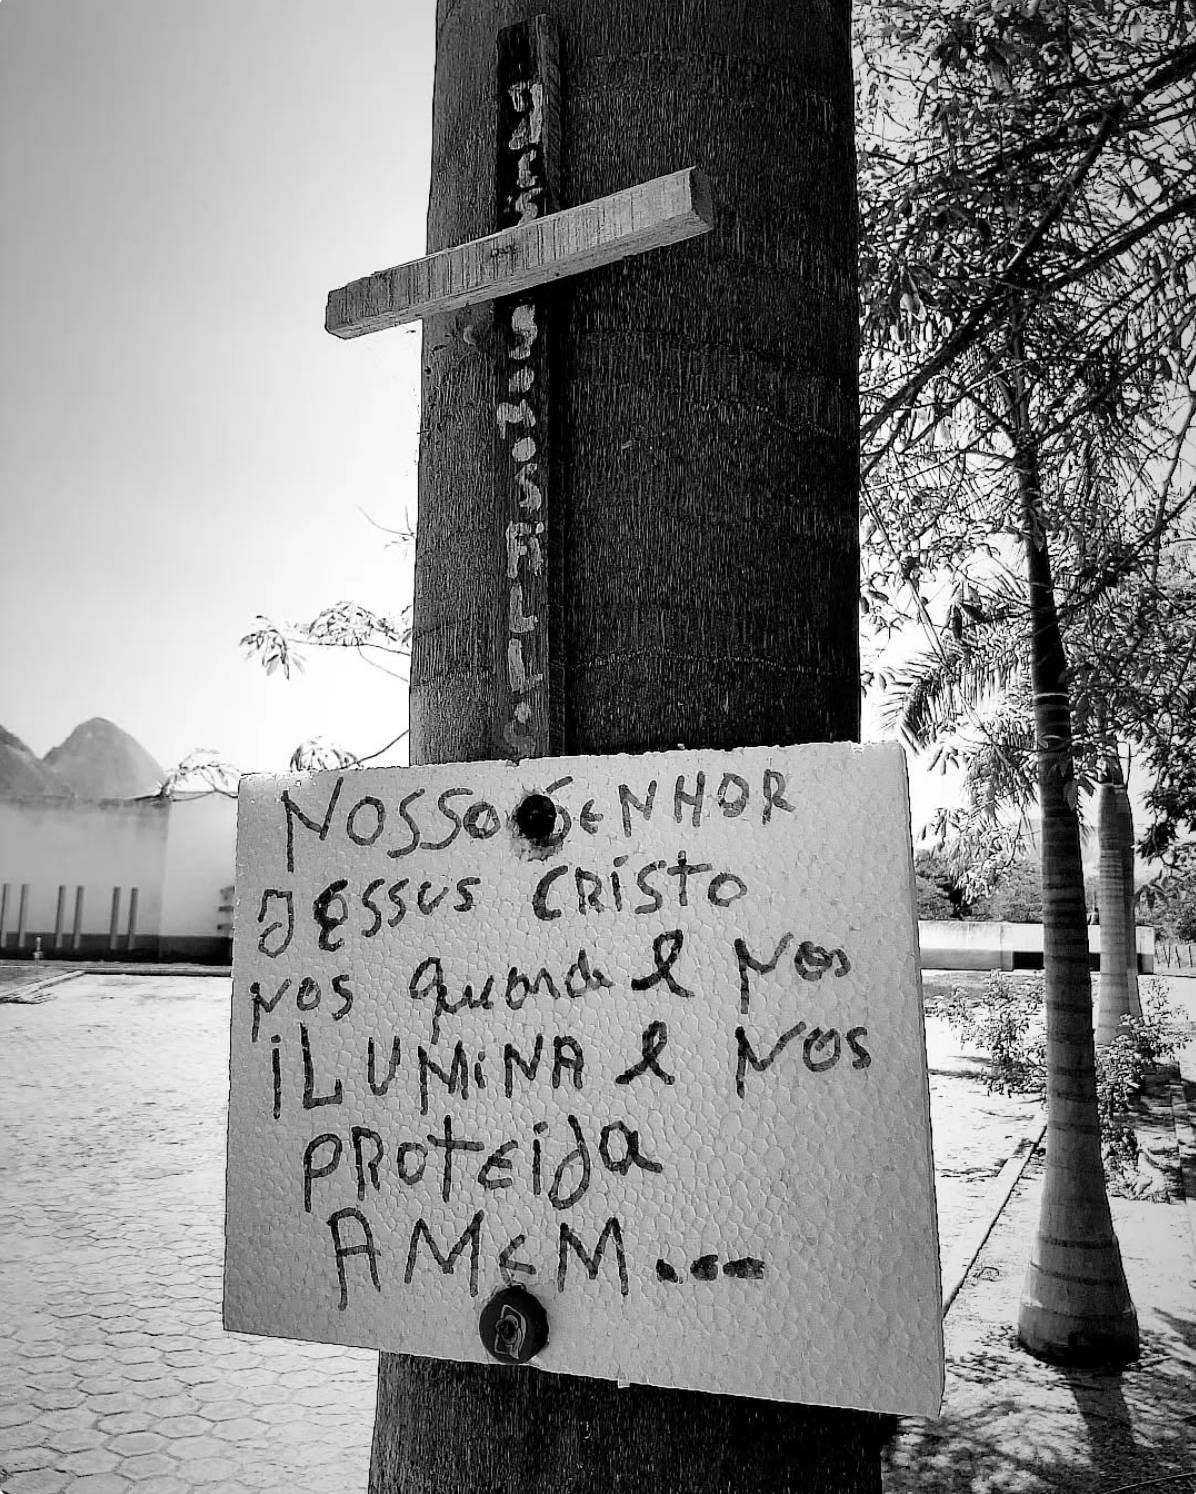 SOMOS FiLL
NOSSO SENHOR
JESSUS CRiSTO
NOS quarda e NOS
iLUMiNA e NOS
PROTEIJA
AMEM....